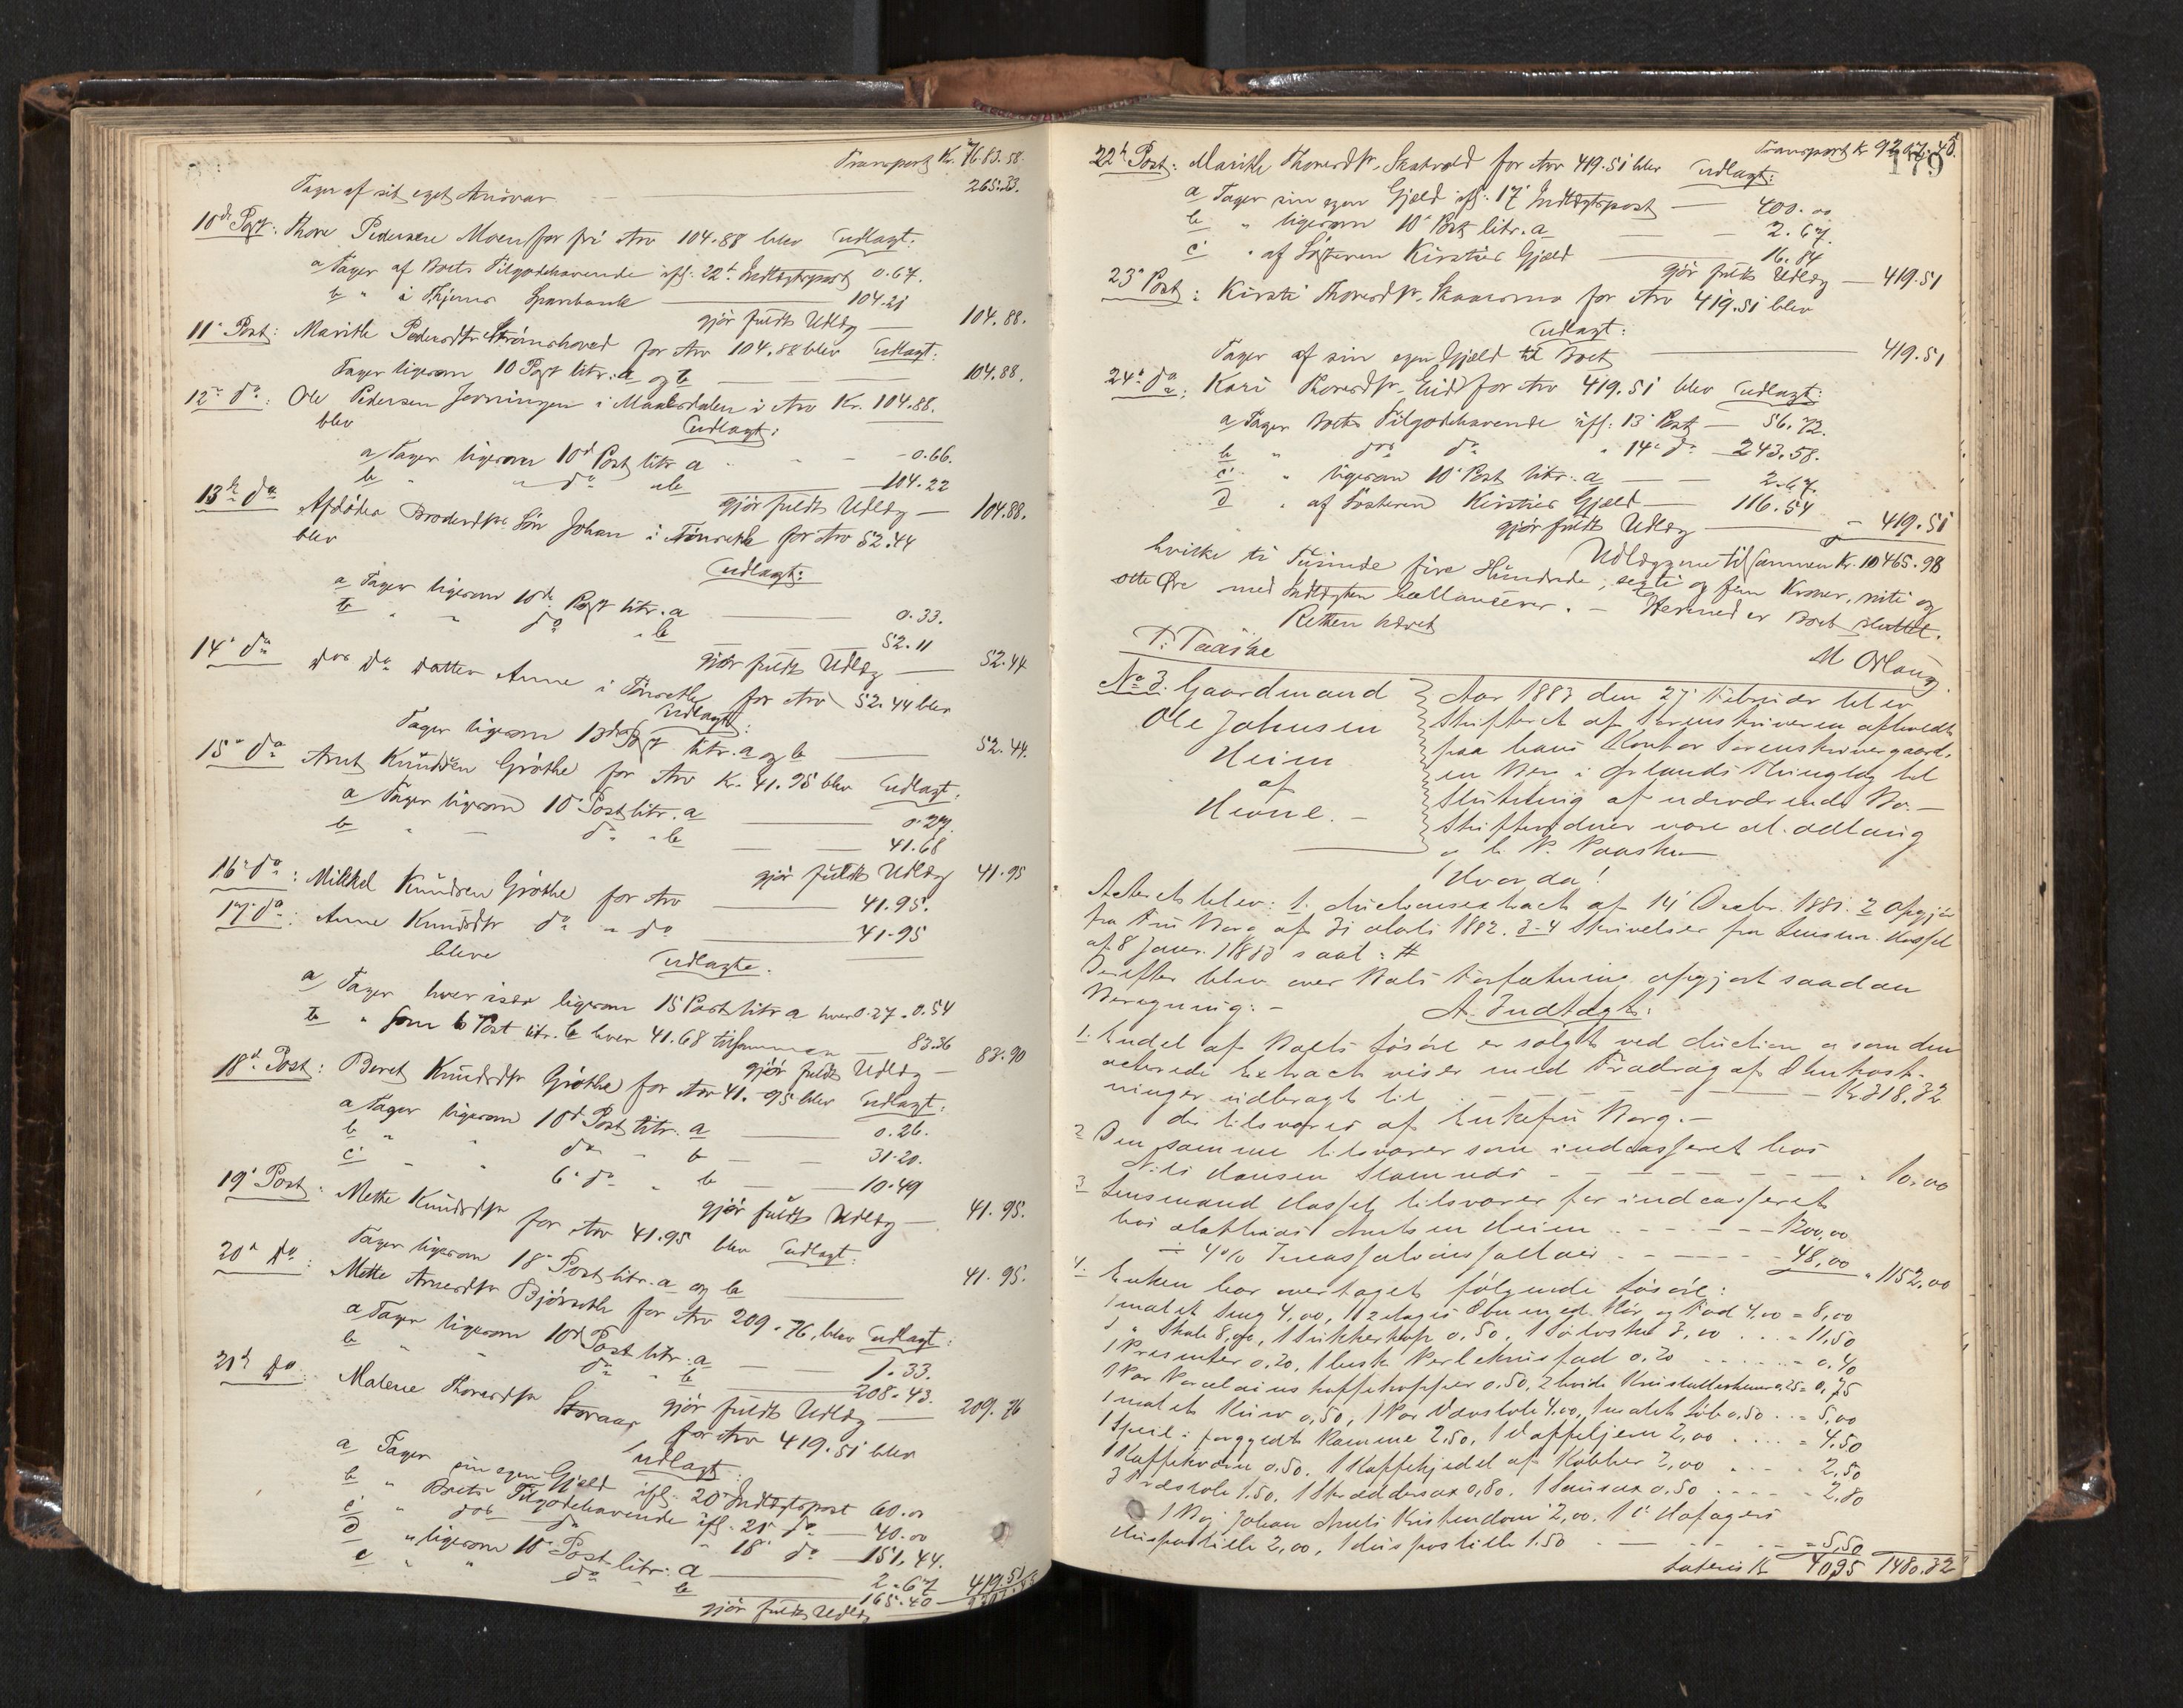 Transport Kr. 7683.58.
Tager af sit eget Ansvar 265.33.
10de Post: Thore Pedersen Moen for fri Arv 104.88 blev Udlagt:
a Tager af Boets Tilgodehavende ifl. 22d Indtægtspost 0.67.
b " i Hjemes Sparebank 104.21
gjør fuldt Udlæg 104.88.
11e Post: Marithe Pedersdtr Strømshoved for Arv 104.88 blev Udlagt:
Tager ligesom 10 Post litr. a og b 104.88.
12te do: Ole Pedersen i Maalsdalen i Arv Kr. 104.88.
blev Udlagt:
a Tager ligesom 10d Post litr a 0.66.
b " " do " b 104.22
gjør fuldt Udlæg 104.88.
13de do Afdøde Søn Johan i for Arv 52.44
blev
Udlagt:
a Tager ligesom 10de Post litr. a 0.33.
b " " do " b 52.11
gjør fuldt Udlæg 52.44
14e do do datter Anne i for Arv 52.44 blev
Udlagt:
Tager ligesom 13de Post litr. a og b 52.44.
15e do Arnt Knudsen Grøthe for Arv Kr. 41.95 blev Udlagt:
a Tager ligesom 10e Post litr. a 0.27.
b " - do " b 41.68
gjør fuldt Udlæg 41.95
16e do: Mikkel Knudsen Grøthe for Arv 41.95.
17e do: Anne Knudsdtr do " do 41.95
bleve Udlagte.
a Tager hver især ligesom 15 Post litr a hver 0.27 - 0.54
b " som 6 Post litr. b hver 41.68 tilsammen 83.36
gjør fuldt Udlæg 83.90
18d Post: Beret Knudsdtr Grøthe for Arv 41.95 blev Udlagt:
a Tager ligesom 10d Post litr. a 0.26.
b " " do " b 31.20.
c " " 6e do " b 10.49
gjør fuldt Udlæg 41.95.
19e Post: Mette Knudsdtr for Arv 41.95 blev Udlagt:
Tager ligesom 18e Post litr. a og b 41.95.
20e do: Mette Arnesdtr for Arv 209.76, blev Udlagt:
a Tager ligesom 10d Post litr. a 1.33.
b " " do " b 208.43.
gjør fuldt Udlæg 209.76
21de do: Malene Thoresdtr Storaas for Arv 419.51 blev
Udlagt:
a Tager sin egen Gjæld ifl. 20e Indtægtspost 60.00
b " Boets Tilgodehavende ifl. 21e do 40.00
c " do do " 18e do 151.44.
d " ligesom 10e Post litr. a 2.67
e " " do " b 165.40
gjør fuldt Udlæg 419.51
Transport Kr 9207.45.
179
22de Post: Marithe Thoresdtr. Skatvold for Arv 419.51 blev Udlagt:
a Tager sin egen Gjæld ifl. 17e Indtægtspost 400.00
b " ligesom 10e Post litr. a 2.67.
c " af Søsteren Kirstis Gjæld 16.84
gjør fuldt Udlæg 419.51
23e Post: Kirsti Thoresdtr. for Arv 419.51 blev
Udlagt:
Tager af sin egen Gjæld til Boet 419.51
24e do: Kari Thoresdtr. Eid for Arv 419.51 blev Udlagt:
a Tager Boets Tilgodehavende ifl. 13e Post 56.72.
b " do do " 14e do 243.58.
c " ligesom 10e Post litr. a 2.67.
d " af Søsteren Kirstis Gjæld 116.54
gjør fuldt Udlæg 419.51
Udlæggene tilsammen Kr. 10465.98
hvilke ti Tusinde fire Hundrede, sexti og fem Kroner, niti og
otte Øre med Indtægten ballancerer. - Hermed er Boet sluttet.
Retten hævet
P. Paaske M Odlaug.
No 3. Gaardmand
Ole Johnsen
Heim
af
Hevne. -
Aar 1883 den 27 Februar blev
Skifteret af Sorenskriveren afholdt
paa hans Kontor Sorenskrivergaard-
en Berg i Ørlands Thinglag til
Slutning af nærværende Bo. -
Skiftevidner vare M. Odlaug
og P. Paaske
Hvorda!
Acteret blev: 1. Auctionsextract af 14 Decbr. 1881. 2 Opgjør
fra Fru Berg af 31 Marts 1882. 3-4 Skrivelser fra Lensm. Hassel
af 8 Januar 1883 saal: #
Derefter blev over Boets Forfatning opgjort saadan
Beregning: - A. Indtægt:
1. Endel af Boets Løsøre er solgt ved Auction og som den
acterede Extract viser med Fradrag af Omkost-
ninger udbragt til Kr 318.32
der tilsvares af Enkefru Berg. -
2 Den samme tilsvarer som indcasseret hos
Nils Hansen Stamnes " 10.00
3 Lensmand Hassel tilsvarer for indcasseret
hos Mathias Arntsen Heim 1200,00
÷ 4% Incassationssallair 48,00 " 1152,00
4. Enken har overtaget følgende Løsøre:
1 malet Seng 4,00, 1 2 Etages Ovn med Rør og Fod 4,00 = 8,00
1 " Skab 8,00, 1 Sukkerkop 0.50, 1 3,00 = 11,50
1 0.20, 1 0.20 = 0.40
1 Par Porcelains kaffekopper 0.50, 2 hvide 0,25 = 0,75
1 malet 0,50, 1 Par Vævstole 4.00, 1 malet 0,50 = 5,00
1 Speil i forgyldt Ramme 2.50, 1 2,00 = 4.50
1 Kaffekværn 0.50. 1 Kaffekjedel af Kobber 2,00 2,50
3 1.50, 1 Skræddersax 0,80. 1 Sausax 0.50 2,80
1 Bog Johan Arnts Kristendom 2,00. 1
Huspostille 2,00, 1 Huspostille 1.50 = 5,50
Lateris Kr 40,95 1480.32